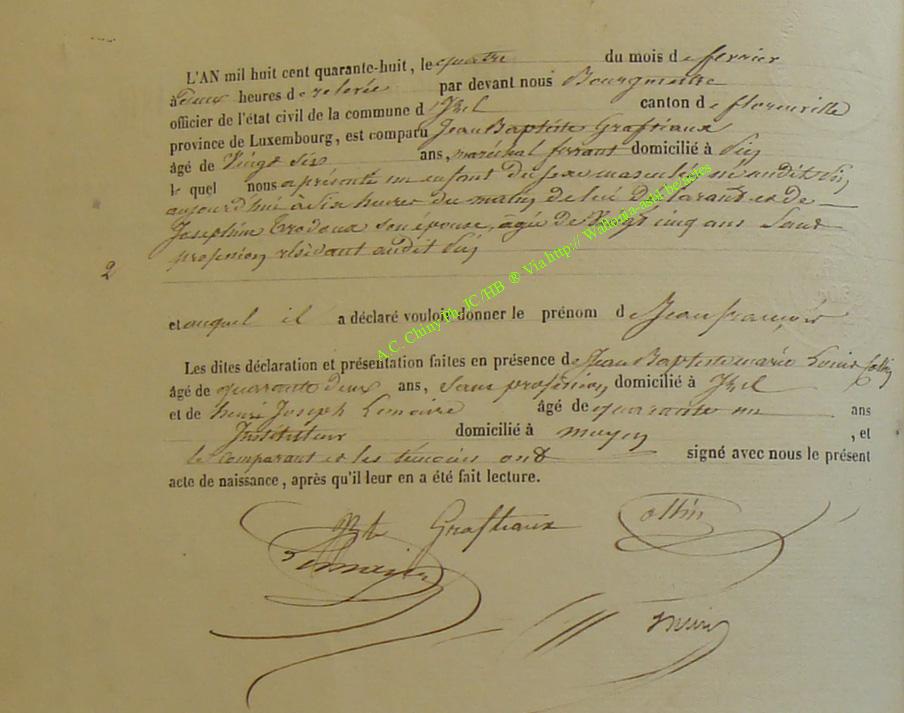 L'AN mil huit cent quarante-huit, le quatre du mois de fevrier
à Deux heures de relevée par devant nous Bourgmestre
officier de l'état civil de la commune d'Izel canton de florenville
province de Luxembourg, est comparu Jean Baptiste Graftiaux
âgé de Vingt Six ans, maréchal ferrant domicilié à Pin
le quel nous a présenté un enfant du sexe masculin né audit Pin
aujourd'hui à Six heures du matin de lui Déclarant et de
Josephine son épouse, âgée de Vingt cinq ans Sans
profession résidant audit Pin
2
et auquel il a déclaré vouloir donner le prénom de Jean françois
Les dites déclaration et présentation faites en présence de Jean Baptiste marie Louis Collin
âgé de quarante deux ans, Sans profession domicilié à Izel
et de henri Joseph Lemaire âgé de quarante un ans
Instituteur domicilié à moyen , et
le comparant et les témoins ont signé avec nous le présent
acte de naissance, après qu'il leur en a été fait lecture.
Graftiaux Collin
A.C. Chiny Ph. JC /HB ® Via http:// Wallonia-asbl benelos